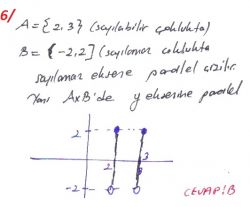 6/
A = {2,3} (sayılabilir çoklukta)
B = (-2,2] (sayılamaz çoklukta
sayılamaz eksene paralel çizilir.
Yani AxB'de y eksenine paralel
2
2 3
-2
CEVAP: B